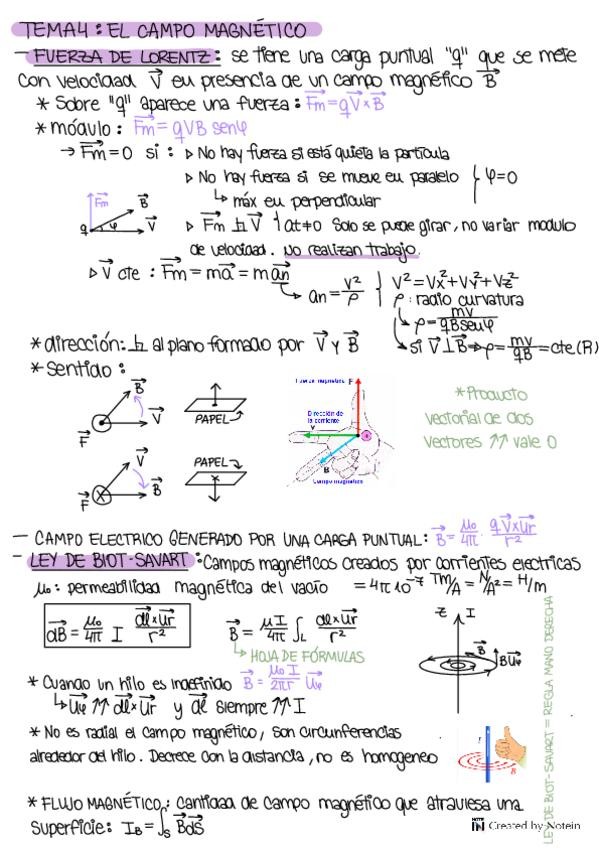 TEMA4: EL CAMPO MAGNÉTICO
- FUERZA DE LORENTZ: se tiene una carga puntual "q" que se mete
con velocidad V⃗ en presencia de un campo magnético B⃗
* Sobre "q" aparece una fuerza: F⃗m=qV⃗×B⃗
* módulo: F⃗m=qVB senφ
→ F⃗m=0 si: ▹ No hay fuerza si está quieta la partícula
▹ No hay fuerza si se mueve en paralelo } φ=0
↳ máx en perpendicular
F⃗m B⃗ q φ V⃗
▹ F⃗m ⊥ V⃗ at≠0 Solo se puede girar, no variar modulo
de velocidad. No realizan trabajo.
▹ V⃗ cte : F⃗m = ma⃗ = ma⃗n
↳ an = V²/ρ { V²=Vx²+Vy²+Vz²
ρ: radio curvatura
↳ ρ = mV/qBsenφ
↳ si V⃗⊥B⃗ ⇒ ρ = mv/qB = cte(R)
* dirección: ⊥ al plano formado por V⃗ y B⃗
* Sentido:
B⃗ V⃗ F⃗
PAPEL
Fuerza magnética F
Dirección de
la corriente
V
B
Campo magnético
* Producto
vectorial de dos
vectores ⇈ vale 0
V⃗ B⃗ F⃗
PAPEL
- CAMPO ELECTRICO GENERADO POR UNA CARGA PUNTUAL: B⃗ = μ₀/4π · qV⃗×u⃗r/r²
- LEY DE BIOT-SAVART: Campos magnéticos creados por corrientes electricas
μ₀: permeabilidad magnética del vacío = 4π10⁻⁷ Tm/A = N/A² = H/m
dB⃗ = μ₀/4π I dl⃗×u⃗r/r²
B⃗ = μI/4π ∫L dl⃗×u⃗r/r²
↳ HOJA DE FÓRMULAS
Z I B⃗ Bu⃗φ
* Cuando un hilo es indefinido B⃗ = μ₀ I/2πr u⃗φ
↳ u⃗φ ⇈ dl⃗×u⃗r y dl⃗ siempre ⇈ I
* No es radial el campo magnético, son circunferencias
alrededor del hilo. Decrece con la distancia, no es homogeneo
I B
LEY DE BIOT-SAVART = REGLA MANO DERECHA
* FLUJO MAGNÉTICO: Cantidad de campo magnético que atraviesa una
superficie: IB = ∫s B⃗ds⃗
NOTE IN Created by Notein